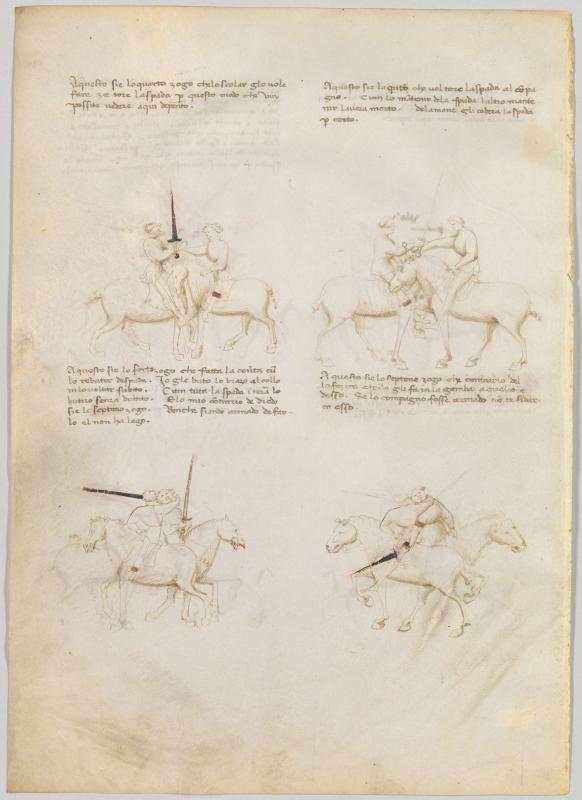 Aquesto sie lo quarto zogo che lo scolar glo vole
fare zoe tore la spada p questo modo che vuy
possite vedere aqui depento.
Aquesto sie lo quito che vol tore la spada al cōpa
gno. Cum lo mātenir dela spada laltro mante
nir lavera morto. dela mane gli cadera la spada
p certo.
Aquesto sie lo sexto zogo che fatta la coūta cū
lo rebatter de spada. Jo gle buto lo brazo al collo
in lo voltar subito. Cum tuta la spada i tera lo
butiro senza dubito. E lo mio cōtrario de driedo
sie lo septeno zogo. Benche siando armado so fa-
lo el non ha logo.
Aquesto sie lo septeno zogo che contrario del
la forza che lo gle fa in la gamba a quello
desso. Se lo compagno fosse armado nō te fidar
in esso.